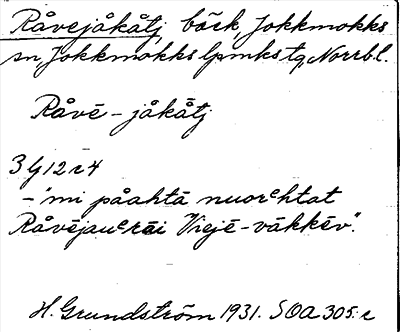 Råvejåkåtj, bäck, Jokkmokks
sn, Jokkmokks lpmkstg, Norrb.l.
Råvē-jåkåtj
3 G 12 r 4
- "mi påahtā nuorᵉhtat
Råvējauᵉrēi Viejē-vākkēv".
H. Grundström 1931. SOA 305: r